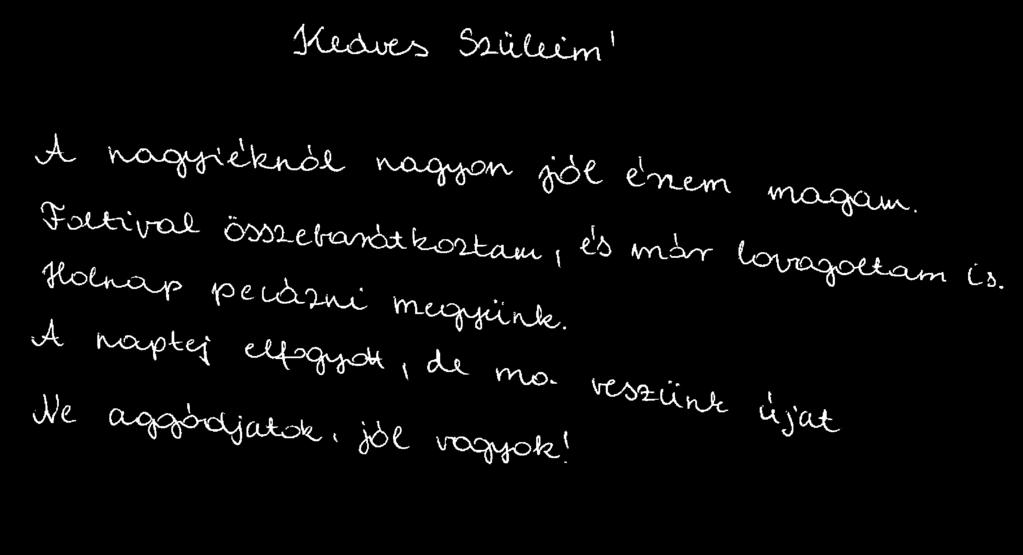 Kedves Szüleim!
A nagyiéknál nagyon jól érzem magam.
Foltival összebarátkoztam, és már lovagoltam is.
Holnap pecázni megyünk.
A naptej elfogyott, de ma veszünk újat
Ne aggódjatok, jól vagyok!